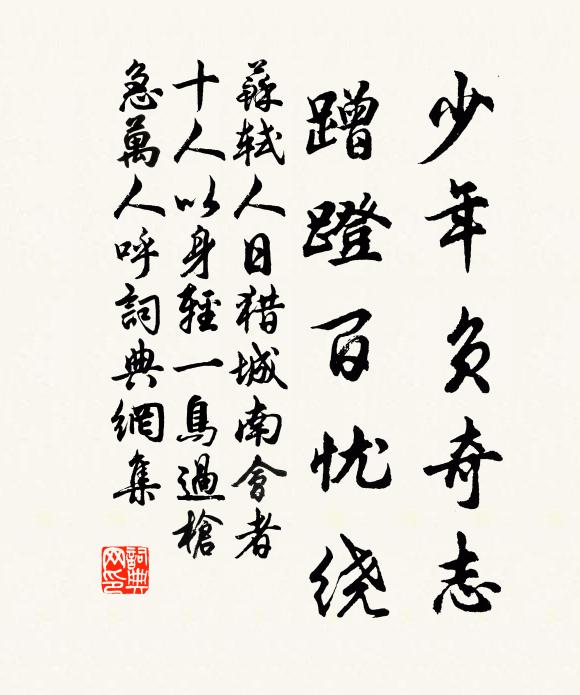 少年负奇志
蹭蹬百忧绕
蘇軾人日猎城南會者
十人以身輕一鳥過槍
急萬人呼詞典網集
詞典网印